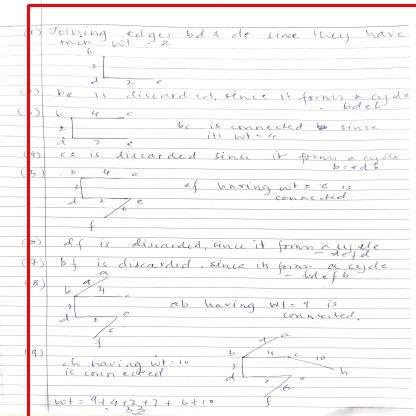 (1) Joining edges bd & de since they have
min wt 2
b
2
d 2 e
(2) be is discarded, since it forms a cycle
- bdeb
(3) b 4 c
2
d 2 e
bc is connected since
its wt = 4
(4) ce is discarded since it forms a cycle
(5) b 4 c
2
d 2 e
6
f
ef having wt = 6 is
connected
(6) df is discarded, since it forms a cycle
- defd
(7) bf is discarded, since its forms a cycle
- bdefb
(8) a
b 4 c
2
d e
f
ab having wt = 9 is
connected.
(9)
ch having wt = 10
is connected
a
b 4 c 10
2 h
d 2 e
6
f
wt = 9+4+2+2+6+10
= 33